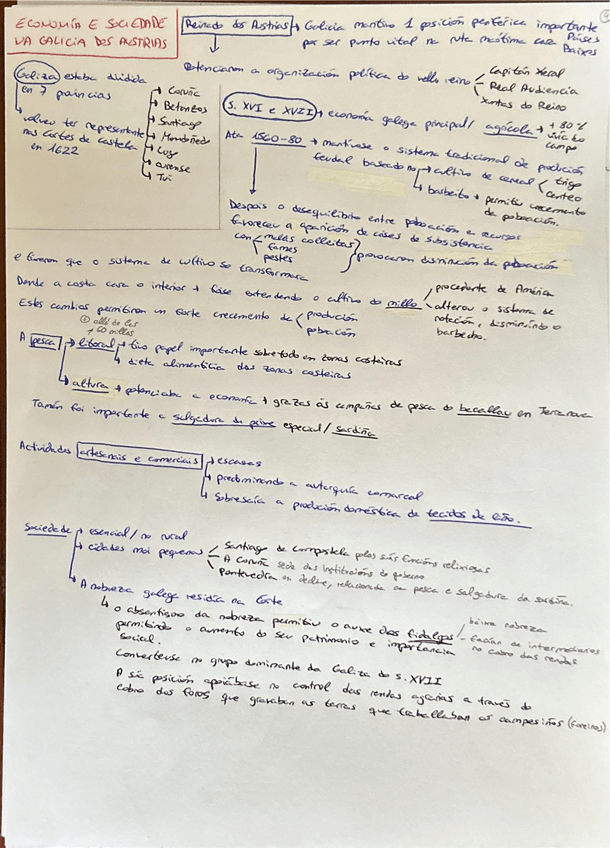 ECONOMÍA E SOCIEDADE
NA GALICIA DOS AUSTRIAS
Reinado dos Austrias → Galicia mantivo 1 posición periférica importante
por ser punto vital na ruta marítima cara Países
Baixos
Potenciaron a organización política do vello reino
Capitán Xeral
Real Audiencia
Xuntas do Reino
Galiza estaba dividida
en 7 provincias
Coruña
Betanzos
Santiago
Mondoñedo
Lugo
Ourense
Tui
volveu ter representante
nas Cortes de Castela
en 1622
S. XVI e XVII → economía galega principal/ agrícola → + 80%
vivía do
campo
Ata 1560-80 → mantívose o sistema tradicional de produción
feudal baseado no → cultivo de cereal
trigo
centeo
barbeito → permitiu crecemento
de poboación.
Despois o desequilibrio entre poboación e recursos
favoreceu a aparición de crises de subsistencia
con
malas colleitas
fames
pestes
provocaron disminución da poboación
e fixeron que o sistema de cultivo se transformara
Dende a costa cara o interior → foise estendendo o cultivo do millo
procedente de América
alterou o sistema de
rotación, disminuindo o
barbecho.
Estes cambios permitiron un forte crecemento de
produción
poboación
+ alló de las
+ 60 millas
A pesca → litoral → tivo papel importante sobre todo en zonas costeiras
→ dieta alimenticia das zonas costeiras
→ altura → potenciaba a economía → grazas ás campañas de pesca do bacallau en Terranova
Tamén foi importante a salgadura do peixe especial/ sardiña
Actividades artesanais e comerciais → escasas
→ predominando a autarquía comarcal
→ Sobresaía a produción doméstica de tecidos de liño.
Sociedade → esencial/ no rural
→ cidades moi pequenas
Santiago de Compostela polas súas funcións relixiosas
A Coruña sede das institucións do goberno
Pontevedra en declive, relacionada coa pesca e salgadura da sardiña.
→ A nobreza galega residía na Corte
↳ o absentismo da nobreza permitiu o auxe dos fidalgos
baixa nobreza
facían de intermediarios
no cobro das rendas
permitindo o aumento do seu patrimonio e importancia
social.
Convertense no grupo dominante da Galiza do S. XVII
A súa posición apoiábase no control das rendas agrarias a través do
cobro dos foros que gravaban as terras que traballaban os campesiños (foreiros)